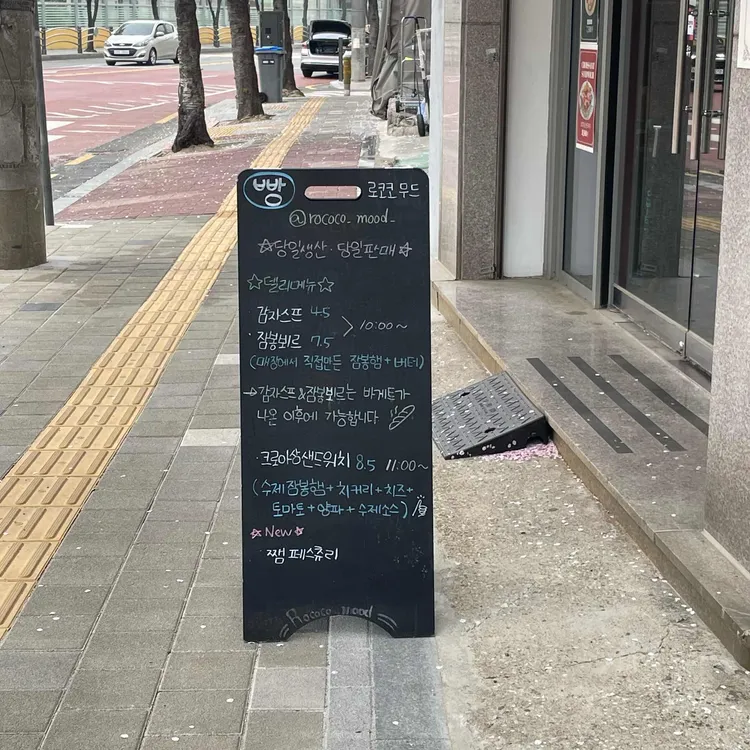 빵 로코코 무드
@rococo_mood_
☆당일생산·당일판매☆
☆델리메뉴☆
감자스프 4.5
· 잠봉뵈르 7.5 > 10:00~
(매장에서 직접만든 잠봉햄+버터)
→감자스프&잠봉뵈르는 바게트가
나온 이후에 가능합니다
· 크로아상샌드위치 8.5 11:00~
(수제잠봉햄+치커리+치즈+
토마토+양파+수제소스)
☆New☆
· 쨈 페스츄리
Rococo_mood